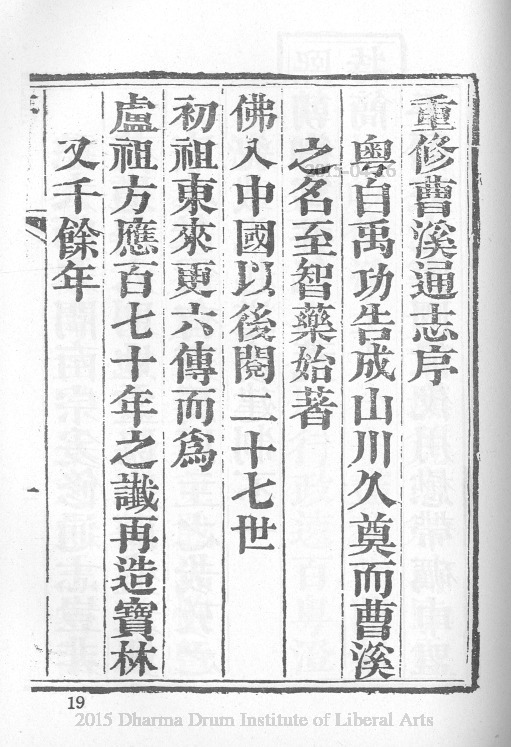 重修曹溪通志序
粤自禹功告成山川久奠而曹溪
之名至智藥始著
佛入中國以後閱二十七世
初祖東來更六傳而爲
盧祖方應百七十年之讖再造寶林
又千餘年
19
2015 Dharma Drum Institute of Liberal Arts